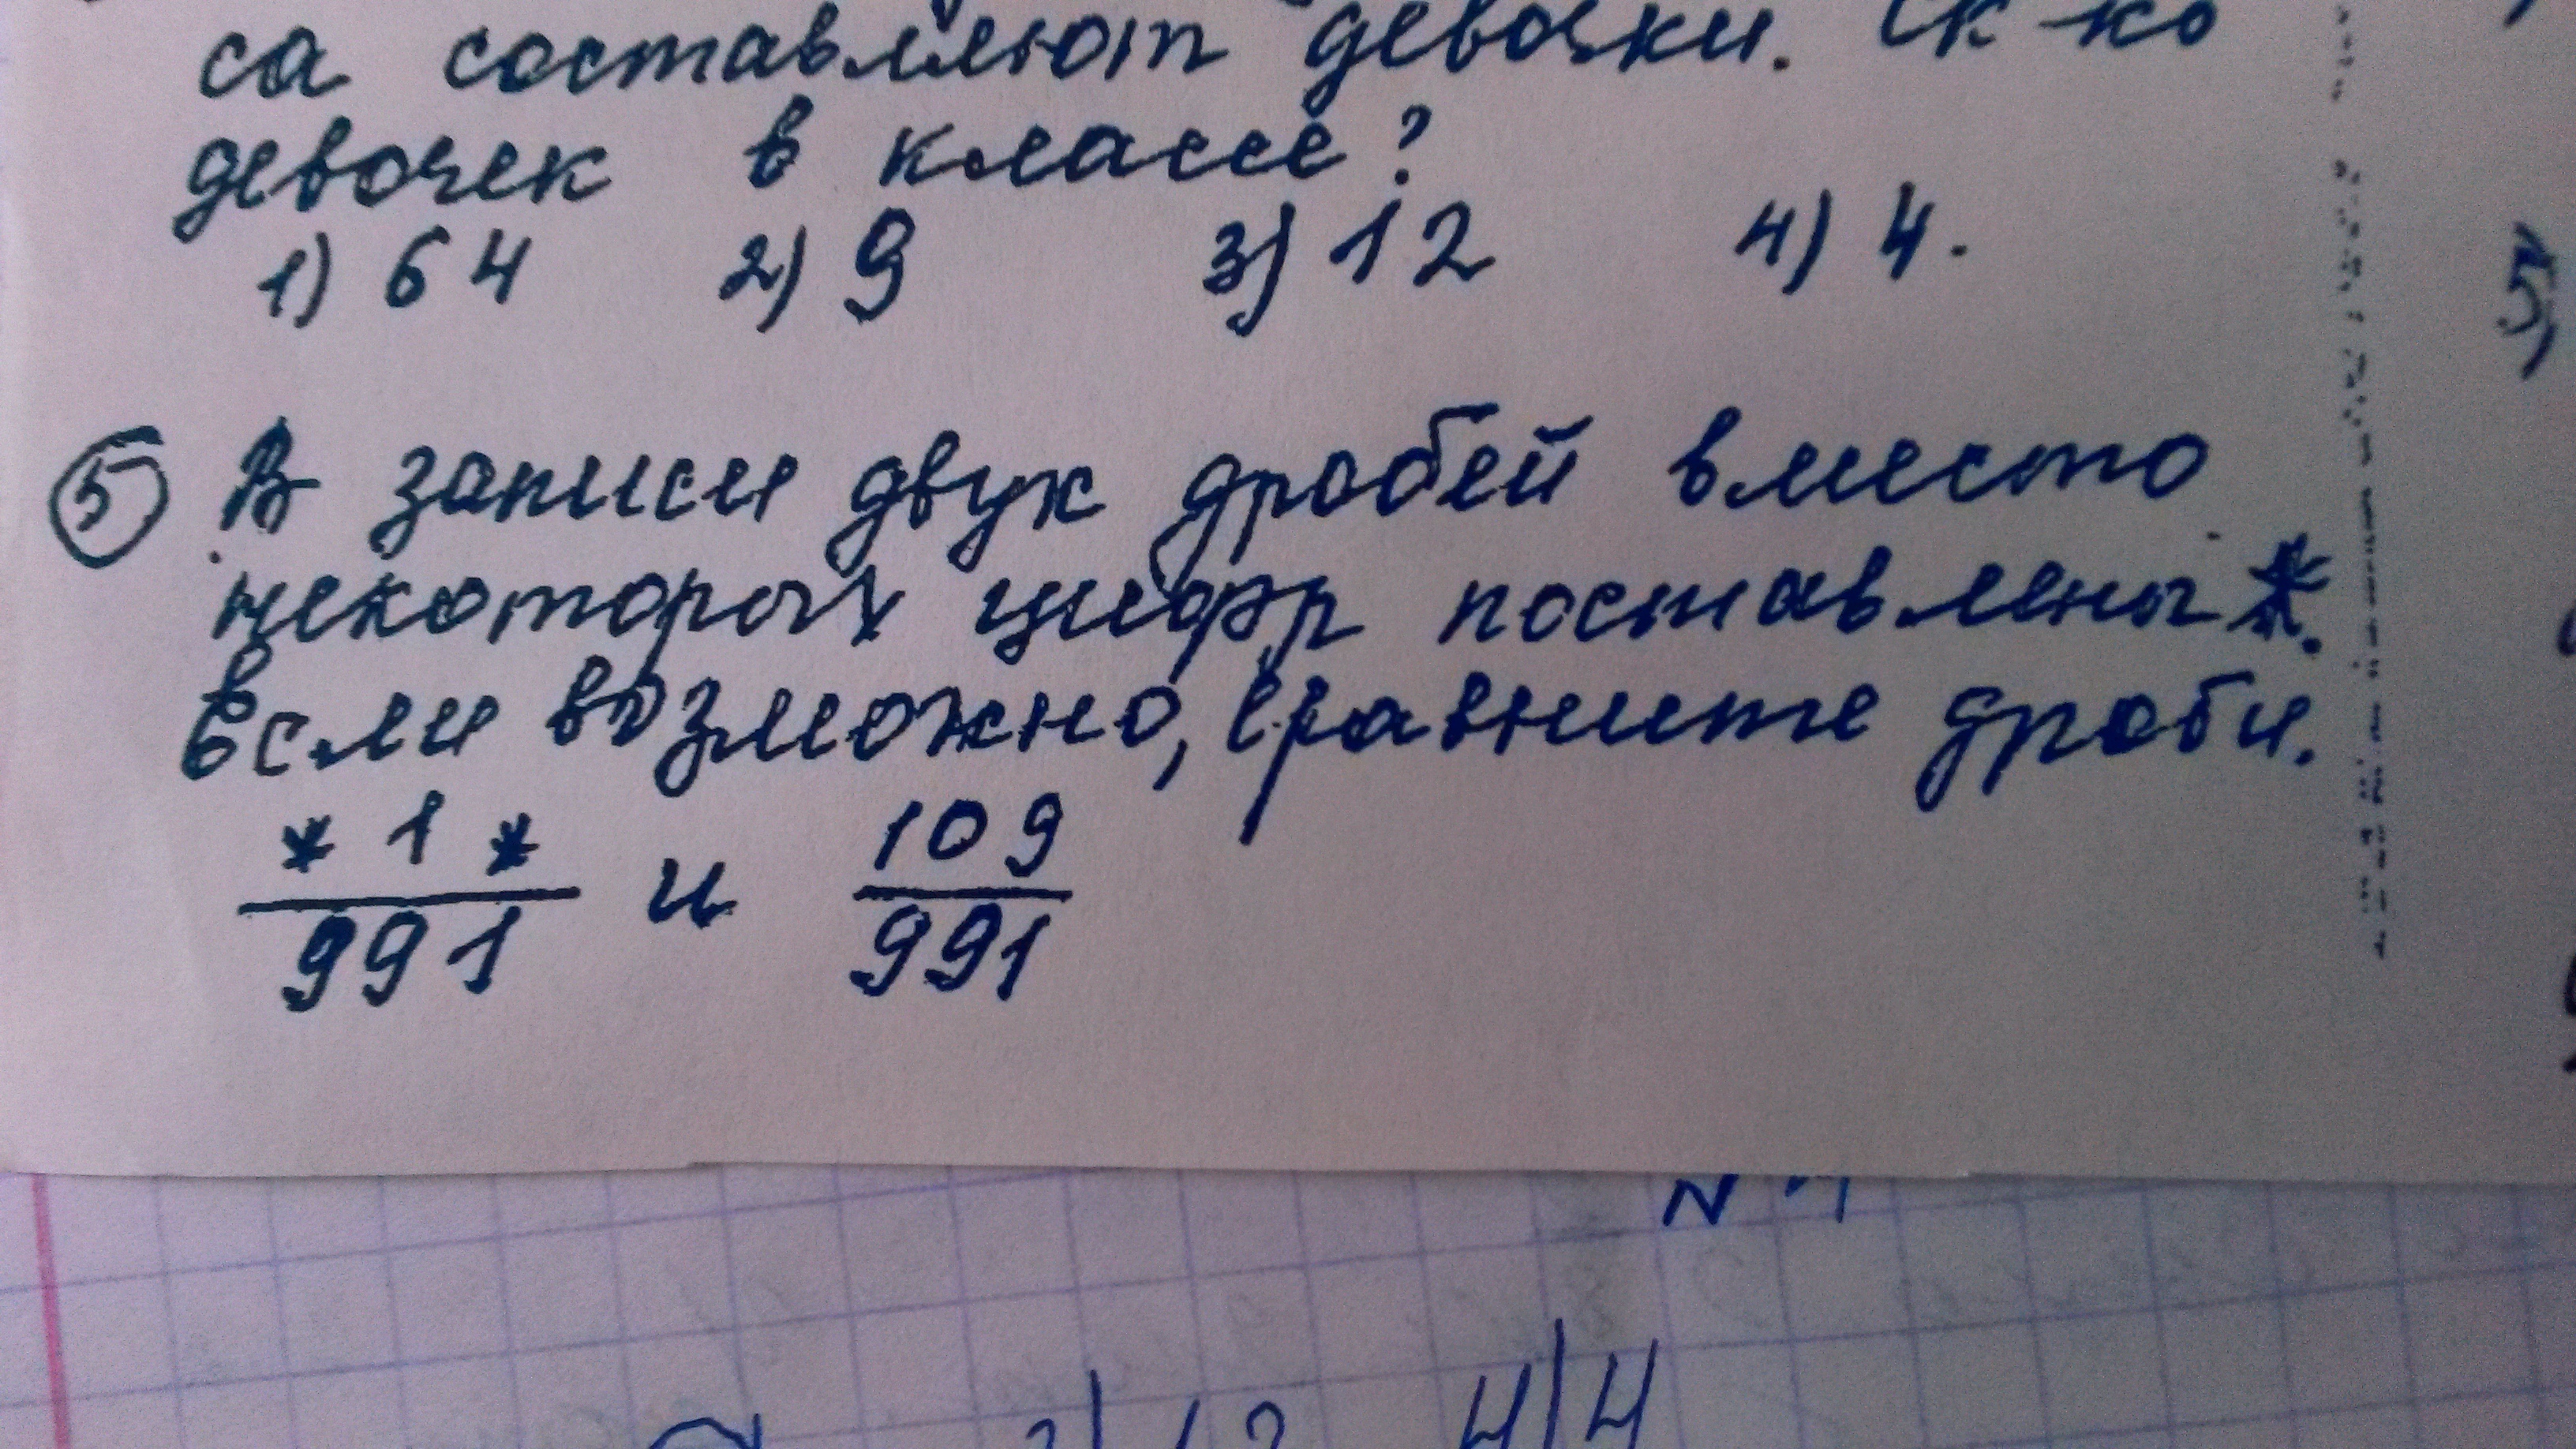 са составляют девочки. Ск-ко
девочек в классе?
1) 64 2) 9 3) 12 4) 4.
5 В записи двух дробей вместо
некоторых цифр поставлены *.
Если возможно, сравните дроби.
*1* и 109
991 991
5)
N
2) 12 4) 4